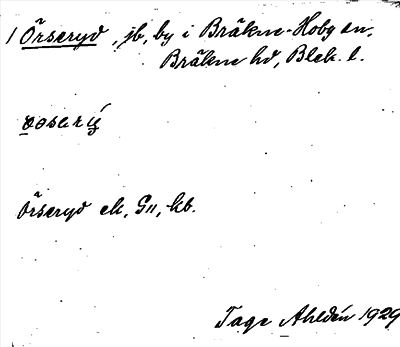 1 Örseryd, jb, by i Bräkne-Hoby sn,
Bräkne hd, Blek. l.
Örseryd ek, G11, kb.
Tage Ahldén 1929